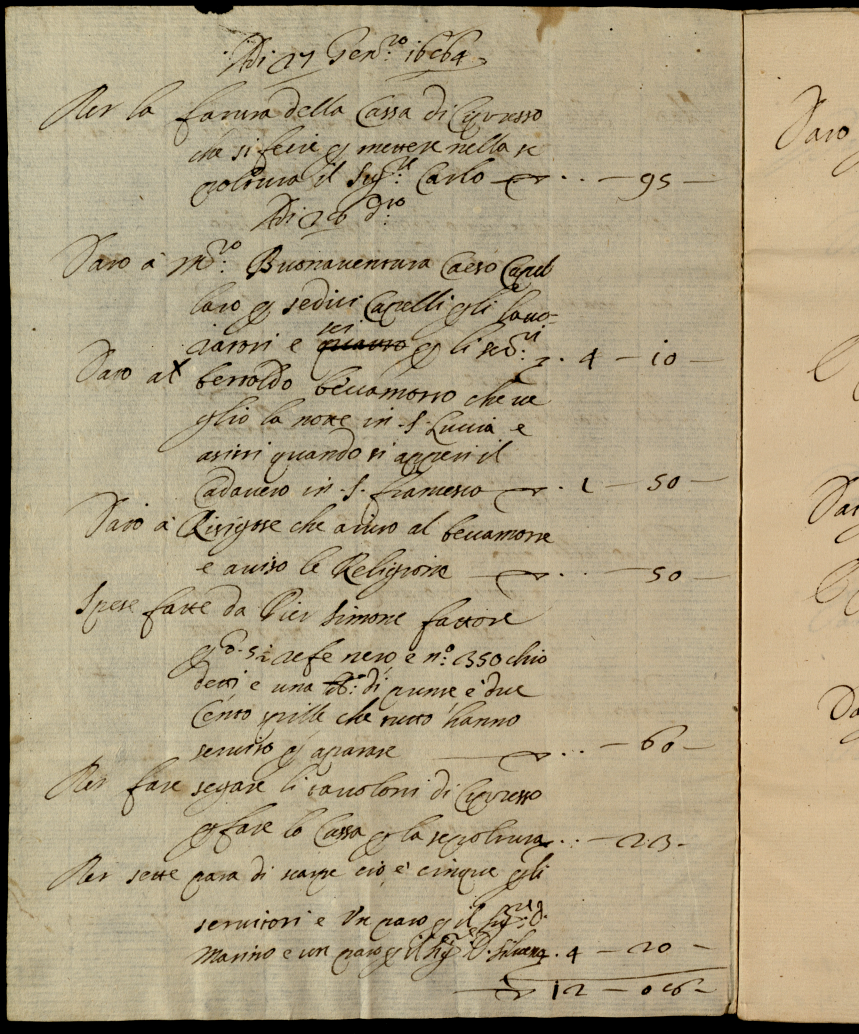 Adi 27 Gen.ro 1664
Per la fatura della Cassa di Cipresso
che si fece p mettere nella se
poltura il Sig.re Carlo — .. — 95 —
Adi 26 d.to
Dato a M.ro Buonaventura Capel
laro p sedici Capelli p li lavo-
ratori e sei quatro p li ser.ri . 4 — 10 —
Dato al bertoldo beccamorto che ve
glio la notte in S. Luccia e
asisti quando si apperse il
Cadavero in S. Francesco — . 1 — 50 —
Dato a che aiuto al beccamorte
e aviso le Religione — .. — 50 —
Spese fatte da Pier Simone fattore
p refe nero e n.o 350 chio
detti e una di punte e due
Cento spille che tutto hanno
servito p aparare — .. — 60 —
Per fare segare li tavoloni di Cipresso
p fare la Cassa p la sepoltura .. — 23 -
Per sette para di scarpe cio è cinque p li
servitori e un paro p il Sig.re D.
Marino e un paro p il Sig.re D. . 4 — 20 —
— 12 — 06 —
Dato